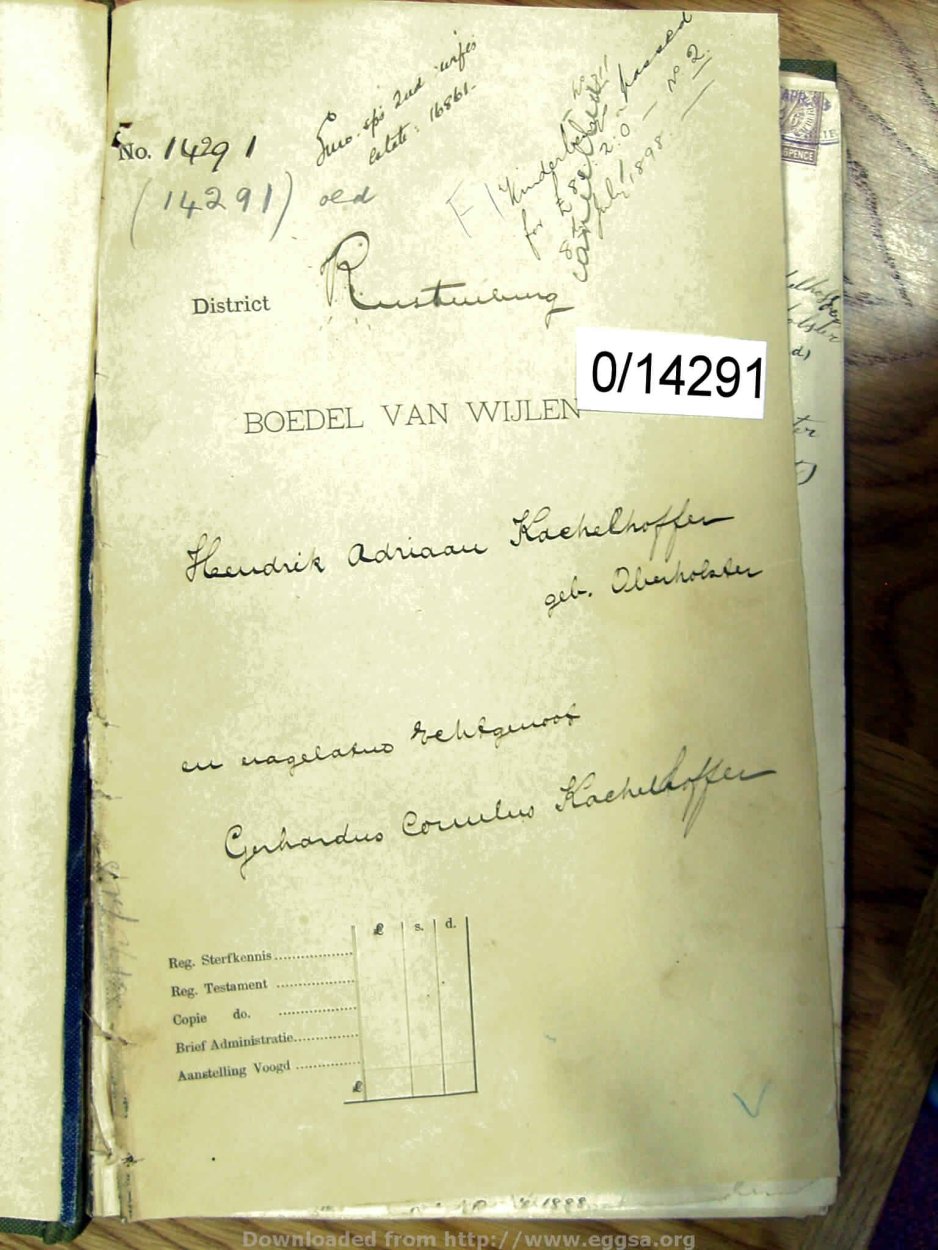 No. 14291
(14291) old
Surv. sp's 2nd wife's
estate: 16861.
F / Kinderbewijs No
for £ 8
2.0. passed
1898. No 2.
District Rustenburg
0/14291
BOEDEL VAN WIJLEN
Hendrik Adriaan Kachelhoffer
geb. Oberholster
en nagelatene Echtgenoot
Gerhardus Cornelus Kachelhoffer
£ s. d.
Reg. Sterfkennis
Reg. Testament
Copie do.
Brief Administratie
Aanstelling Voogd
£
1888
Downloaded from http://www.eggsa.org